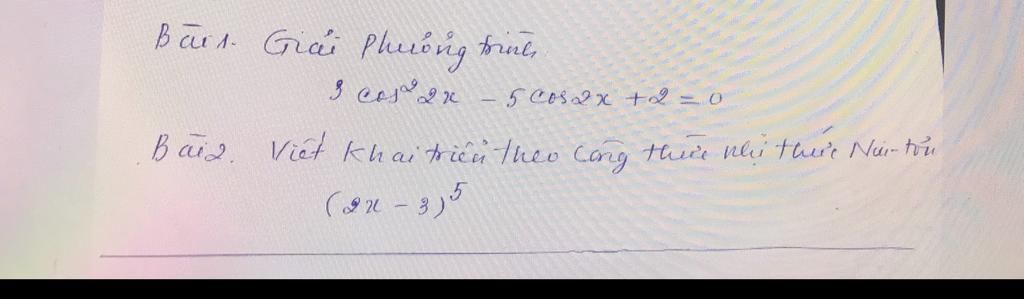 Bài 1. Giải phương trình
3 cos²2x - 5 cos2x + 2 = 0
Bài 2. Viết khai triển theo công thức nhị thức Niu-tơn
(2x - 3)⁵